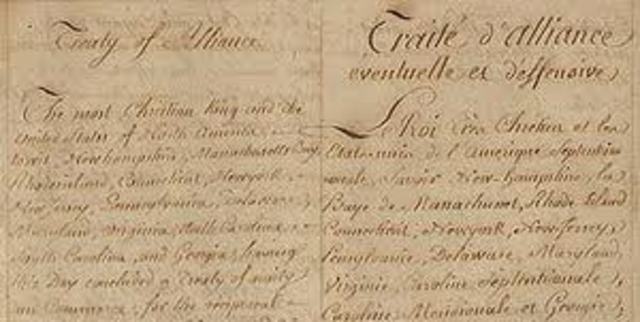 Treaty of Alliance
The most Christian King and the
United States of North America,
to wit, Newhampshire, Massachusetts Bay,
Rhodeisland, Connecticut, Newyork,
New Jersey, Pennsylvania, Delaware,
Maryland, Virginia, North Carolina,
South Carolina, and Georgia, having
this Day concluded a Treaty of amity
and Commerce, for the reciprocal
Traité d'alliance
éventuelle et deffensive
Le Roi très Chretien et les
Etats-unis de l'amerique septentrio
nale, savoir New-hampshire, la
Baye de Massachuset, Rhode Island
Connecticut, Newyork, New-Jersey,
Pensylvanie, Delaware, Maryland,
Virginie, Caroline Septentrionale,
Caroline Meridionale et Georgie,